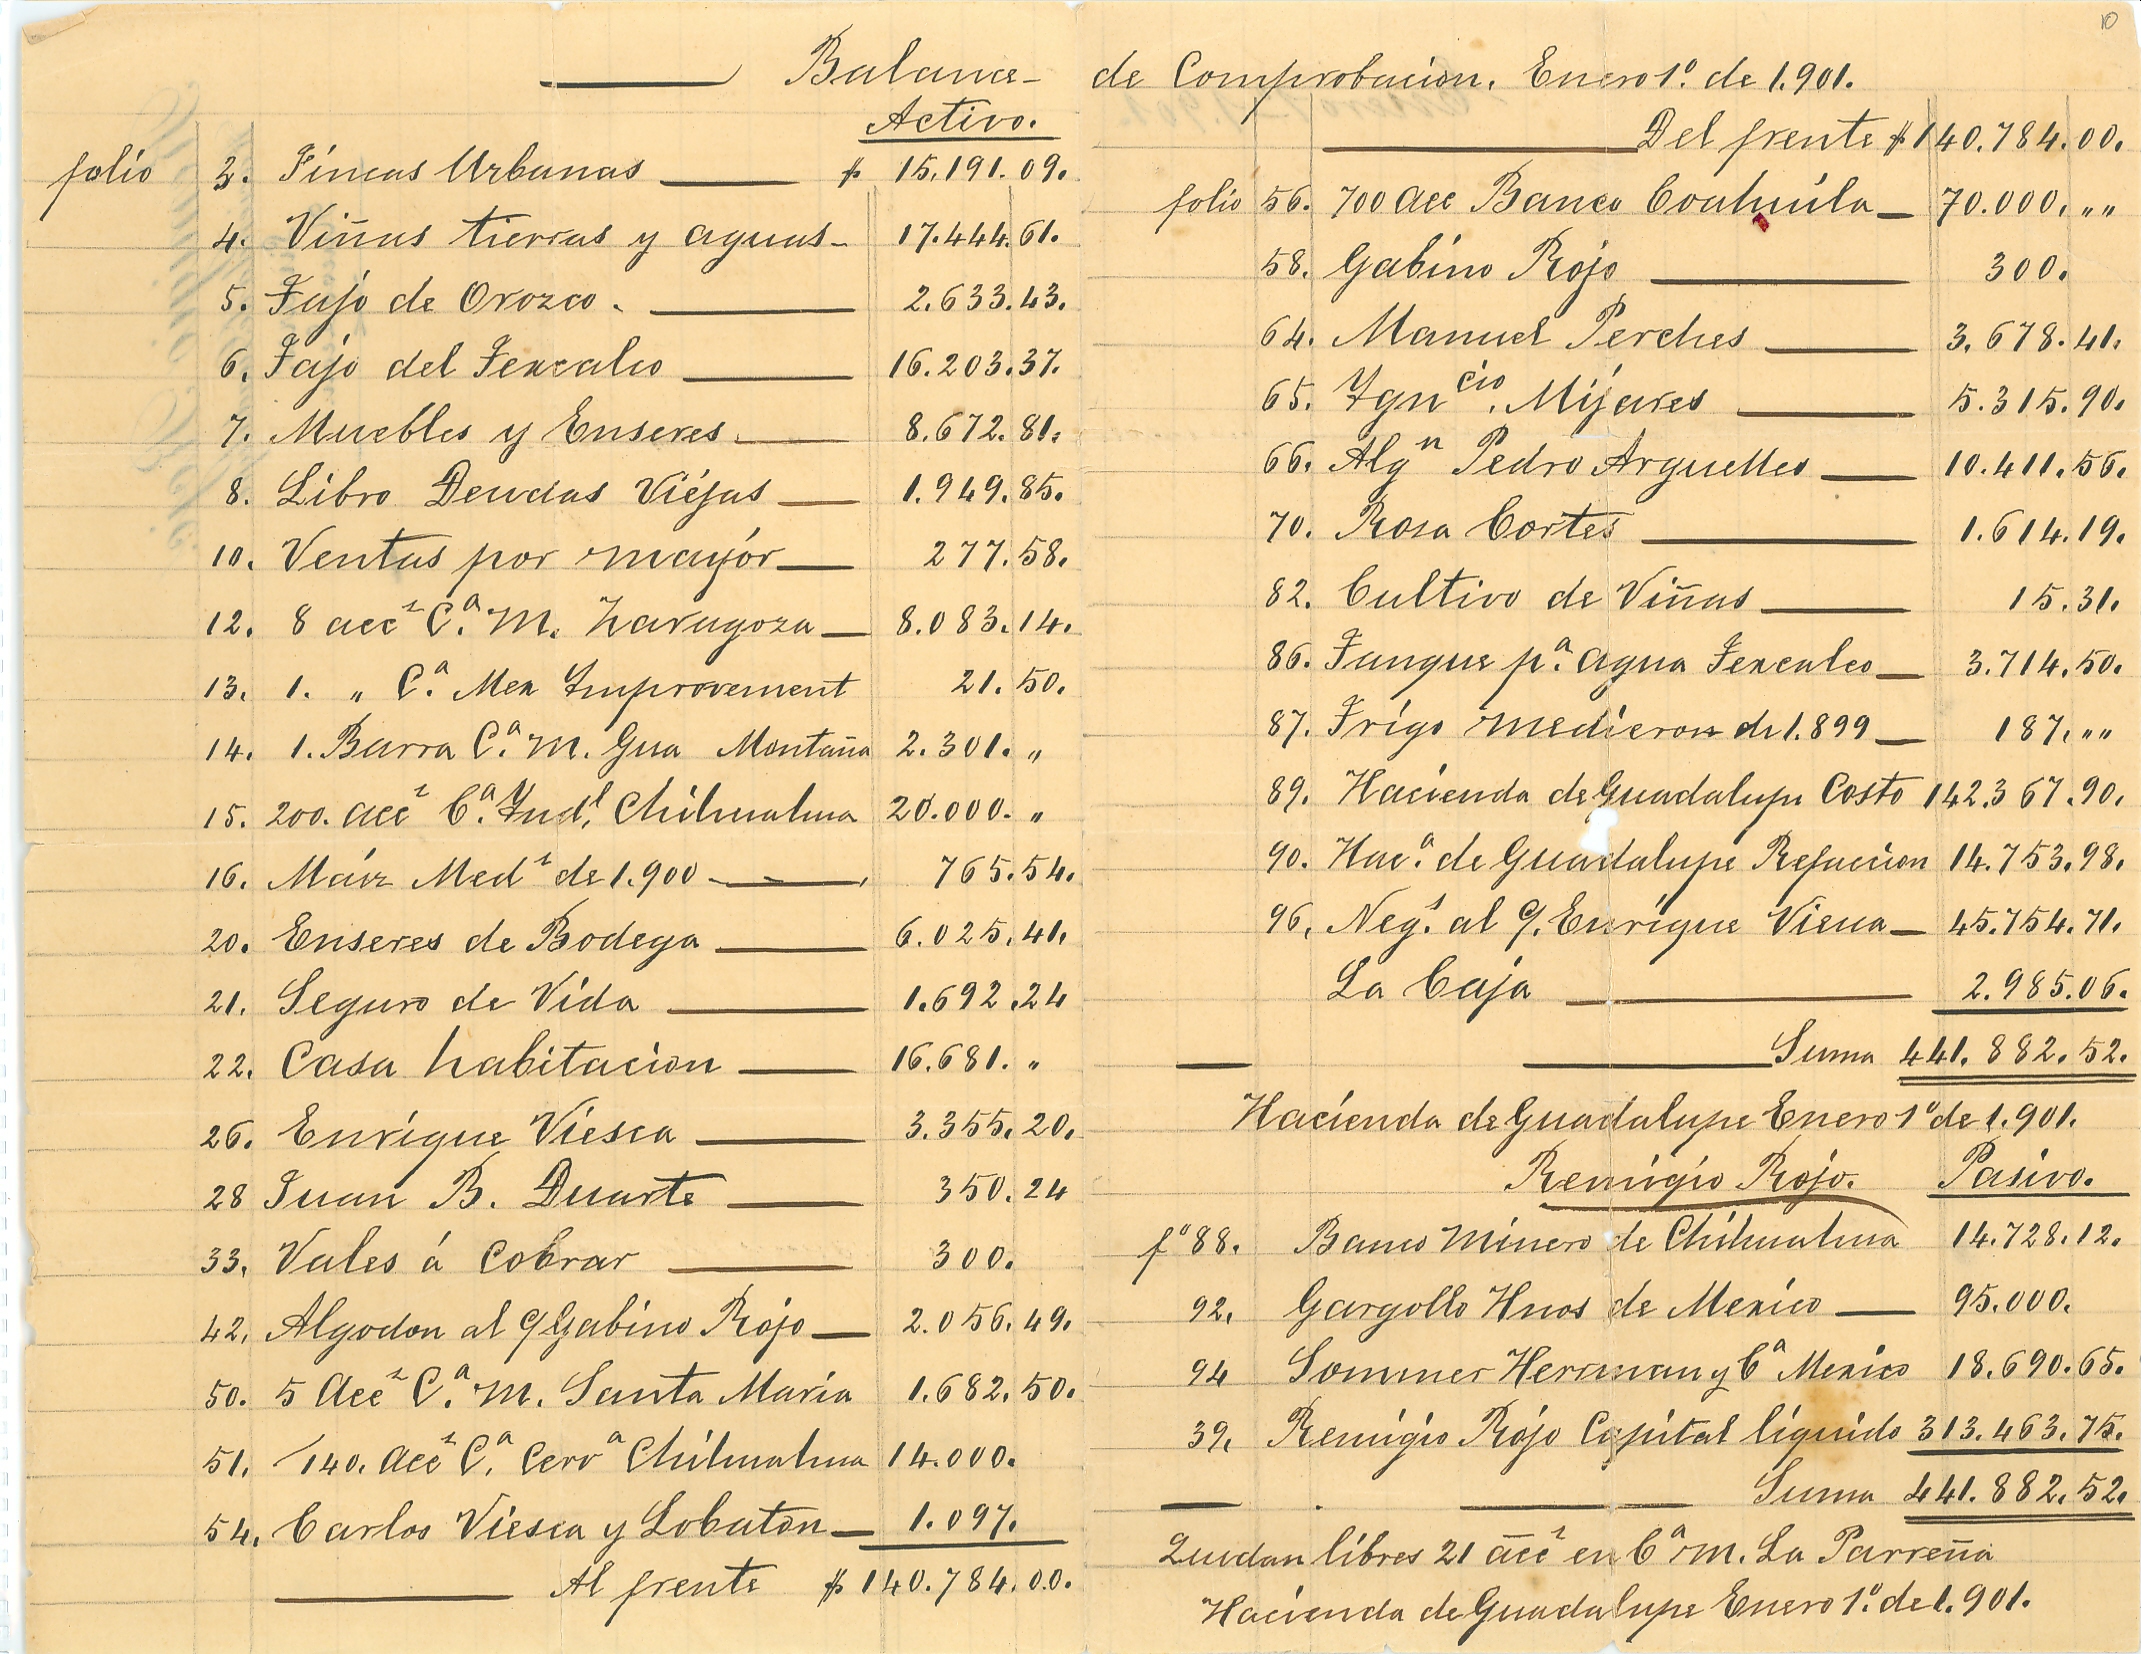 Balance
Activo.
folio 3. Fincas Urbanas $ 15.191.09.
4. Viñas tierras y aguas 17.444.61.
5. Tajo de Orozco. 2.633.43.
6. Tajo del Texcalco 16.203.37.
7. Muebles y Enseres. 8.672.81.
8. Libro Deudas Viejas 1.949.85.
10. Ventas por mayór 277.58.
12. 8 accs Ca. M. Zaragoza 8.083.14.
13. 1. " Ca. Mex Improvement 21.50.
14. 1. Barra Ca. M. Gua Montaña 2.301. "
15. 200. accs Ca. Yndl. Chihuahua 20.000. "
16. Máiz Meds de 1.900 765.54.
20. Enseres de Bodega 6.025.41.
21. Seguro de Vida 1.692.24
22. Casa habitacion 16.681. "
26. Enrique Viesca 3.355.20.
28 Juan B. Duarte 350.24
33. Vales á Cobrar 300.
42. Algodon al q Gabino Rojo 2.056.49.
50. 5 Accs Ca. M. Santa Maria 1.682.50.
51. 140. accs Ca. Cerva Chihuahua 14.000.
54. Carlos Viesca y Lobaton 1.097.
Al frente $ 140.784.00.
10
de Comprobacion. Enero 1o. de 1.901.
Del frente $ 140.784.00.
folio 56. 700 acc Banco Coahuila 70.000. ""
58. Gabino Rojo 300.
64. Manuel Perches 3.678.41.
65. Ygncio. Mijares 5.315.90.
66. Algn Pedro Arguelles 10.411.56.
70. Rosa Cortes 1.614.19.
82. Cultivo de Viñas 15.31.
86. Tanque pa. agua Texcalco 3.714.50.
87. Trigo medieros de 1.899 187. ""
89. Hacienda de Guadalupe Costo 142.367.90.
90. Haca. de Guadalupe Refaccion 14.753.98.
96. Negs. al q. Enrique Viesca 45.754.71.
La Caja 2.985.06.
Suma 441.882.52.
Hacienda de Guadalupe Enero 1o de 1.901.
Remigio Rojo. Pasivo.
fo 88. Banco Minero de Chihuahua 14.728.12.
92. Gargollo Hnos de Mexico 95.000.
94 Sommer Herrman y Ca Mexico 18.690.65.
39. Remigio Rojo Capital liquido 313.463.75.
Suma 441.882.52.
Quedan libres 21 accs en Ca M. La Parreña
Hacienda de Guadalupe Enero 1o. de 1.901.